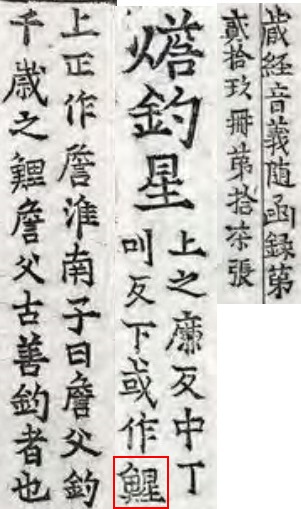 蔵經音義随函録第
貳拾玖冊第拾柒張
釣星
上之廉反中丁
叫反下或作鯹
上正作詹淮南子曰詹父釣
千歲之鯉詹父古善釣者也